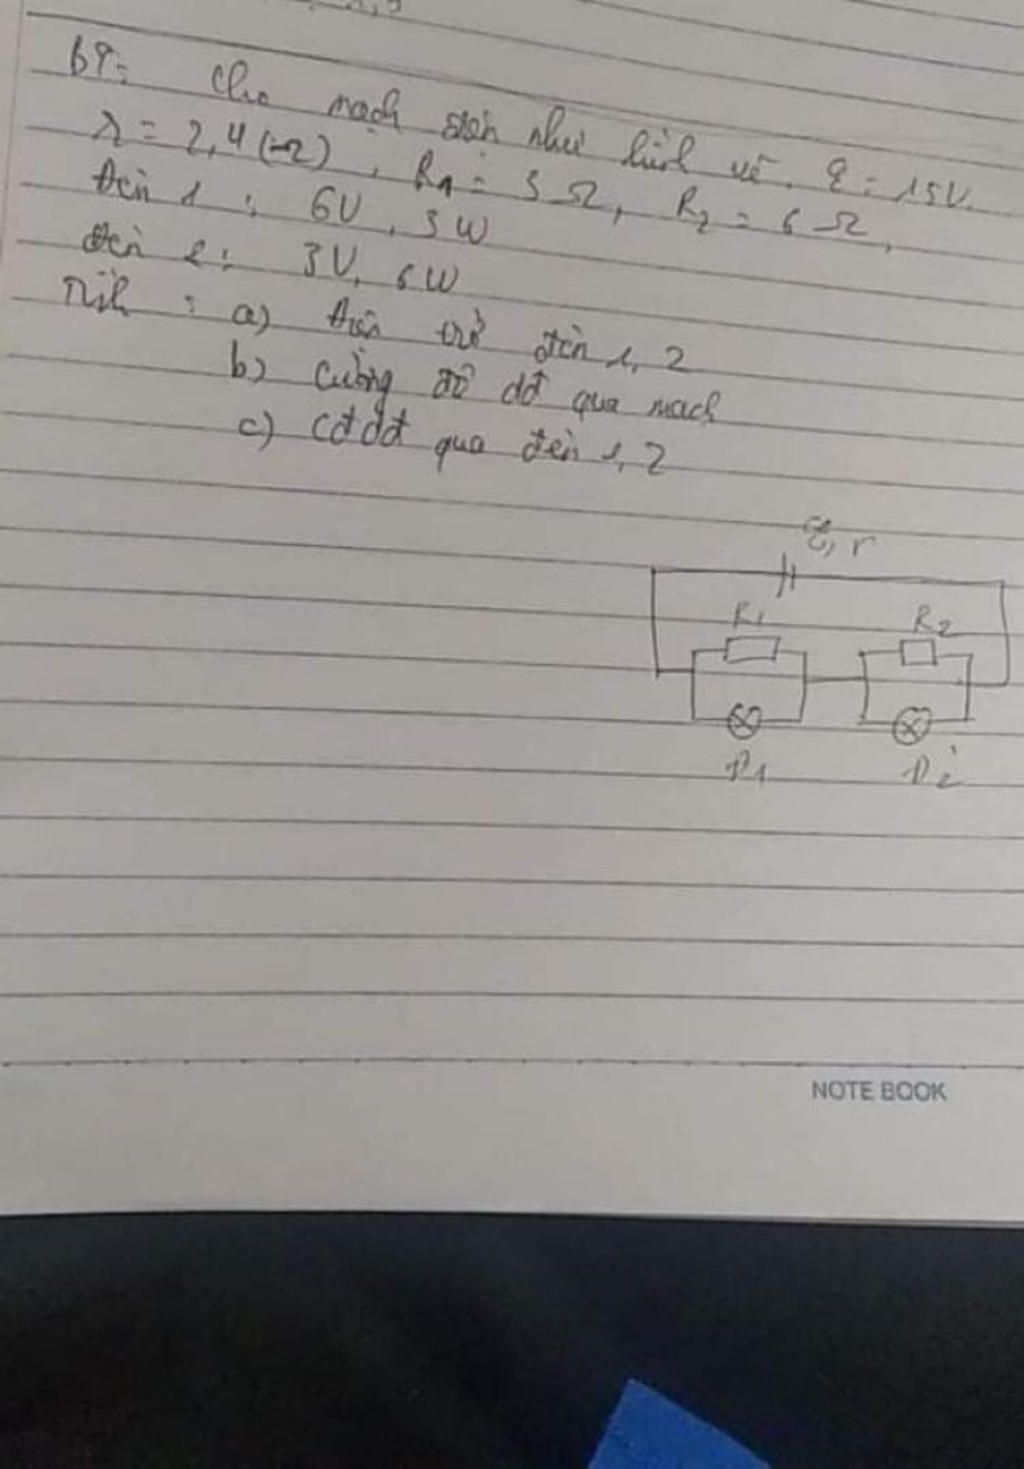 Cho mạch điện như hình vẽ. E = 15V.
r = 2,4 (Ω), R1 = 3 Ω, R2 = 6 Ω,
Đèn 1 : 6V, 3W
đèn 2 : 3V, 6W
Tính : a) Điện trở đèn 1, 2
b) Cường độ dđ qua mạch
c) Cđdđ qua đèn 1, 2
E, r
R1 R2
Đ1 Đ2
NOTE BOOK